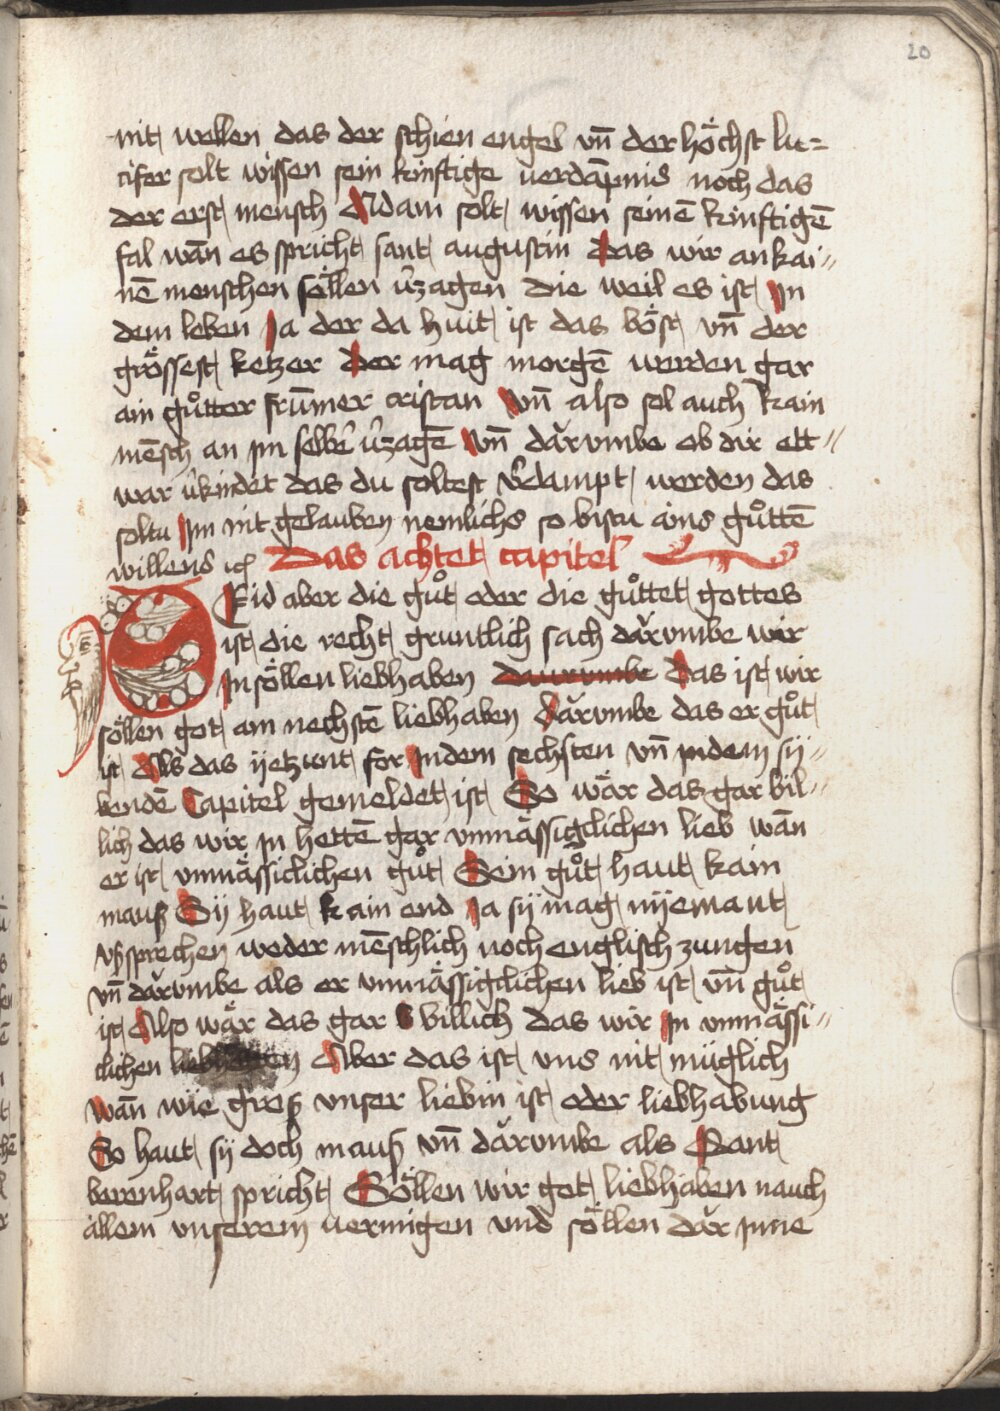 20
nit wellen das der schien engel vn̄ der höchst lu=
cifer solt wissen sein kinftige uerdāpnis noch das
der erst mensch Adam solt wissen seinē kinftigē
fal wān es spricht sant augustin Das wir an kai〃
nē menschen söllen v̉zagen die weil es ist In
dem leben Ja der da huit ist das böst vn̄ der
grössest ketzer Der mag morgē werden gar
ain gůtter frum̄er cristan Vn̄ also sol auch kain
mēsch an jm selbẻ v̉zagē Vn̄ dărvmbe ob dir ett〃
war v̉kindet das du soltest v̉dampt werden das
soltu Im nit gelauben nemlichs so bistu ains gůttē
willens ich Das achtet capitel
Seid aber die gůt oder die gůttet gottes
ist die recht gruntlich sach dărvmbe wir
Jn söllen liebhaben darumbe Das ist wir
söllen got am nechstē liebhaben Dărvmbe das er gůt
ist Als das ijetzunt for Indem sechsten vn̄ indem sÿ〃
bendē Capitel gemeldet ist So wăr das gar bil〃
lich das wir jn hettē gar vnmăssigclichen lieb wān
er ist vnmăssiclichen gůt Sein gůt haut kain
mauß Sÿ haut kain end Ja sÿ mag nÿemant
vßsprechen weder mēschlich noch englisch zungen
vn̄ dărvmbe als er vnmăssigclichen lieb ist vn̄ gůt
ist Also wăr das gar billich das wir In vnmăssi〃
clichen liebhetten Aber das ist vns nit müglich
wān wie groß vnser liebin ist oder liebhabung
So haut sÿ doch mauß vn̄ dărvmbe als Sant
berenhart spricht Söllen wir got liebhaben nauch
allem vnserem uermigen vnd söllen dăr jnne